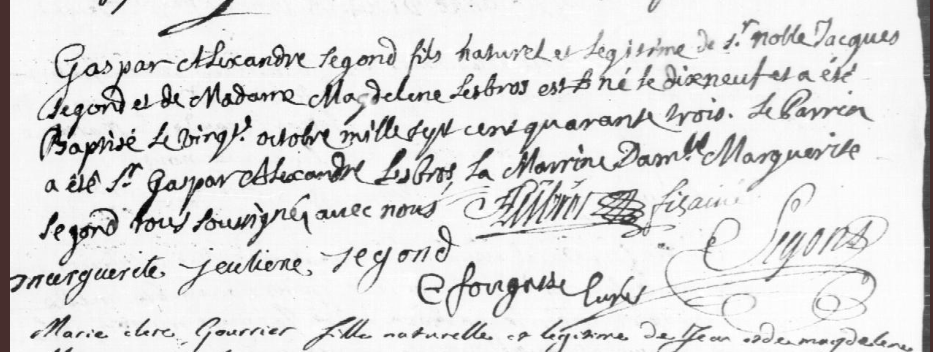 Gaspar Alexandre Segond fils naturel et legitime de Sr. noble Jacques
Segond et de Madame Magdelene Lesbros est né le dixneuf et a été
Baptisé le vingt. octobre mille sept cent quarante trois. Le Parrin
a été Sr. Gaspar Alexandre Lesbros, La Marrine Damlle Marguerite
Segond tous soussignéz avec nous
Segond
marguerite jeuliene segond
Marie clere Gourrier fille naturelle et legitime de Jean et de magdelene